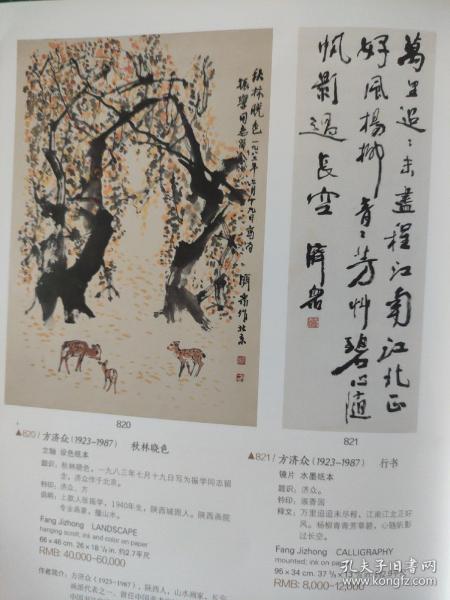 秋林晓色一九八三年七月十九日写为
振学同志留念
济众作北京
萬里迢迢未盡程江南江北正
好風楊柳青青芳艸碧心随
帆影過長空
济众
820
821
▲820/方济众(1923-1987) 秋林晓色
立轴 设色纸本
题识：秋林晓色，一九八三年七月十九日写为振学同志留
念，济众作于北京。
钤印：济众、方
说明：上款人张振学，1940年生，陕西城固人。陕西画院
专业画家，擅山水。
Fang Jizhong LANDSCAPE
hanging scroll; ink and color on paper
66 x 46 cm. 26 x 18 1/8 in. 约2.7平尺
RMB: 40,000-60,000
作者简介：方济众(1923-1987)，陕西人，山水画家，长安
画派代表之一，曾任中国美术
▲821/方济众(1923-1987) 行书
镜片 水墨纸本
题识：济众。
释文：万里迢迢未尽程，江南江北正好
风。杨柳青青芳草碧，心随帆影
过长空。
Fang Jizhong CALLIGRAPHY
mounted; ink on paper
95 x 34 cm. 37
RMB: 8,000-12,000
孔夫子旧书网